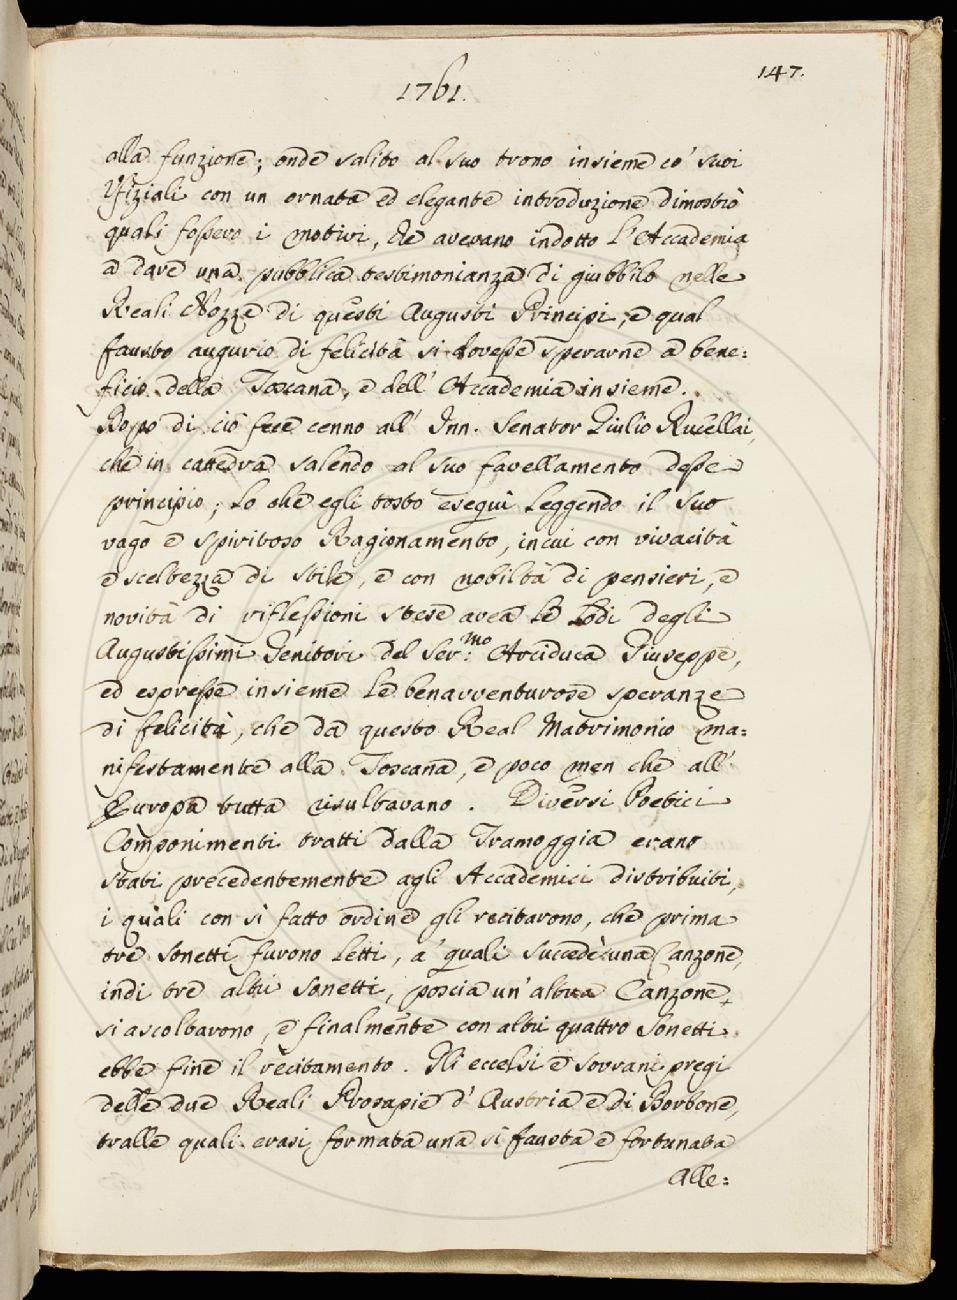 147.
1761.
alla funzione; onde salito al suo trono insieme co' suoi
Ufiziali con un ornata ed elegante introduzione dimostrò
quali fossero i motivi, che avevano indotto l'Accademia
a dare una pubblica testimonianza di giubbilo nelle
Reali Nozze di questi Augusti Principi, e qual
fausto augurio di felicità si dovesse sperarne a bene:
ficio della Toscana, e dell' Accademia insieme.
Dopo di ciò fece cenno all' Inn. Senator Giulio Rucellai,
che in cattedra salendo al suo favellamento desse
principio; lo che egli tosto eseguì leggendo il suo
vago e spiritoso Ragionamento, in cui con vivacità
e sceltezza di stile, e con nobiltà di pensieri, e
novità di riflessioni stese avea le Lodi degli
Augustissimi Genitori del Ser:mo Arciduca Giuseppe,
ed espresse insieme le benavventurose speranze
di felicità, che da questo Real Matrimonio ma:
nifestamente alla Toscana, e poco men che all'
Europa tutta risultavano. Diversi Poetici
Componimenti tratti dalla Tramoggia erano
stati precedentemente agli Accademici distribuiti,
i quali con sì fatto ordine gli recitarono, che prima
tre Sonetti furono letti, a' quali succedè una Canzone,
indi tre altri Sonetti, poscia un' altra Canzone
si ascoltarono, e finalmente con altri quattro Sonetti
ebbe fine il recitamento. Gli eccelsi e sovrani pregi
delle due Reali Prosapie d' Austria e di Borbone,
tralle quali erasi formata una sì fausta e fortunata
Alle: